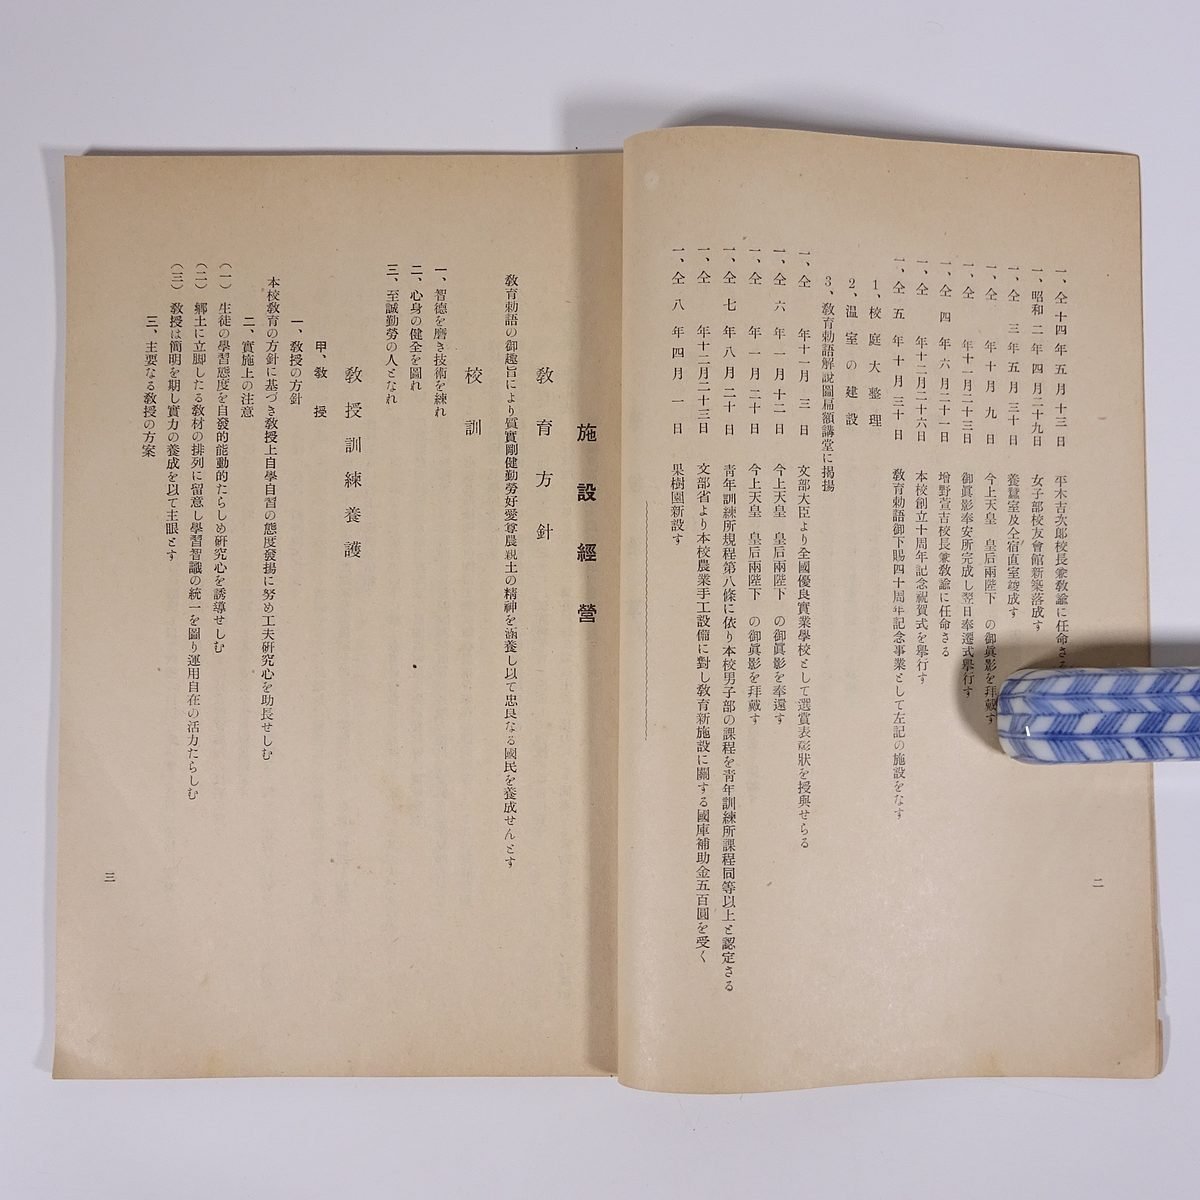 一、仝十四年五月十三日　平木吉次郎校長兼敎諭に任命さる
一、昭和二年四月二十九日　女子部校友會館新築落成す
一、仝三年五月三十日　養蠶室及仝宿直室竣成す
一、仝年十月九日　今上天皇　皇后兩陛下の御眞影を拜戴す
一、仝年十一月二十三日　御眞影奉安所完成し翌日奉遷式擧行す
一、仝四年六月二十一日　增野萱吉校長兼敎諭に任命さる
一、仝年十二月二十六日　本校創立十周年記念祝賀式を擧行す
一、仝五年十月三十日　敎育勅語御下賜四十周年記念事業として左記の施設をなす
1、校庭大整理
2、溫室の建設
3、敎育勅語解說圖扁額講堂に揭揚
一、仝年十一月三日　文部大臣より全國優良實業學校として選賞表彰狀を授與せらる
一、仝六年一月十二日　今上天皇　皇后兩陛下の御眞影を奉還す
一、仝年一月二十日　今上天皇　皇后兩陛下の御眞影を拜戴す
一、仝七年八月二十日　靑年訓練所規程第八條に依り本校男子部の課程を靑年訓練所課程同等以上と認定さる
一、仝年十二月二十三日　文部省より本校農業手工設備に對し敎育新施設に關する國庫補助金五百圓を受く
一、仝八年四月一日　果樹園新設す
二
施設經營
敎育方針
敎育勅語の御趣旨により質實剛健勤勞好愛尊農親土の精神を涵養し以て忠良なる國民を養成せんとす
校訓
一、智德を磨き技術を練れ
二、心身の健全を圖れ
三、至誠勤勞の人となれ
敎授訓練養護
甲、敎授
一、敎授の方針
本校敎育の方針に基づき敎授上自學自習の態度發揚に努め工夫硏究心を助長せしむ
二、實施上の注意
（一）生徒の學習態度を自發的能動的たらしめ硏究心を誘導せしむ
（二）鄕土に立脚したる敎材の排列に留意し學習智識の統一を圖り運用自在の活力たらしむ
（三）敎授は簡明を期し實力の養成を以て主眼とす
三、主要なる敎授の方案
三